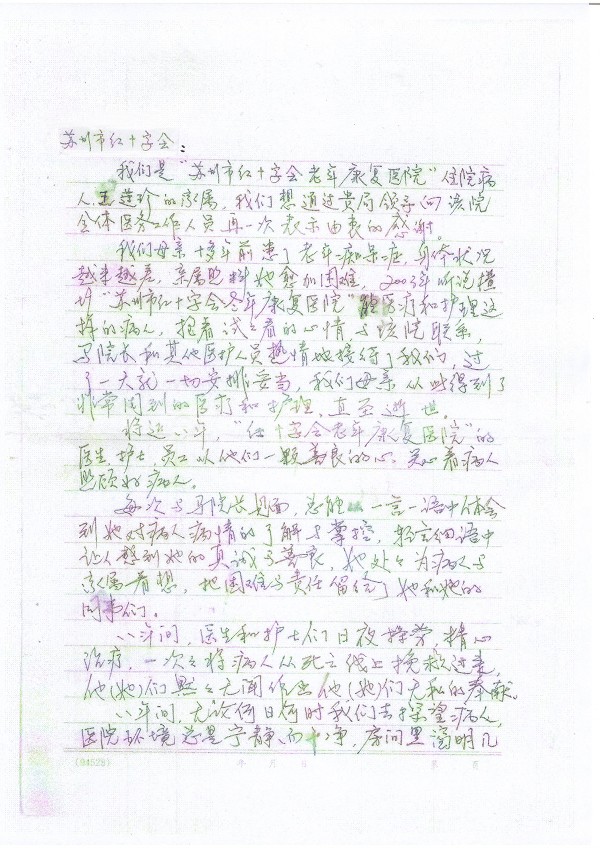 苏州市红十字会：
我们是“苏州市红十字会老年康复医院”住院病
人 王莲珍的家属，我们想通过贵局领导向该院
全体医务工作人员再一次表示由衷的感谢。
我们母亲十多年前患了老年痴呆症，身体状况
越来越差，亲属照料她愈加困难，2003年听说横
塘“苏州市红十字会老年康复医院”能医疗和护理这
样的病人，抱着试试看的心情，与该院联系，
马院长和其他医护人员热情地接待了我们，过
了一天就一切安排妥当，我们母亲从此得到了
非常周到的医疗和护理，直至逝世。
将近八年，“红十字会老年康复医院”的
医生、护士、员工以他们一颗善良的心，关心着病人
照顾好病人。
每次与马院长见面，总能 一言一语中体会
到她对病人病情的了解与掌控，轻言细语中
让人感到她的真诚与善良，她处处为病人与
家属着想，把困难与责任留给了她和她的
同事们。
八年间，医生和护士们日夜操劳，精心
治疗，一次次将病人从死亡线上挽救过来，
他(她)们默默无闻作出他(她)们无私的奉献。
八年间，无论何日何时我们去探望病人，
医院环境总是宁静而干净，房间里窗明几
(94528) 年 月 日 第 页